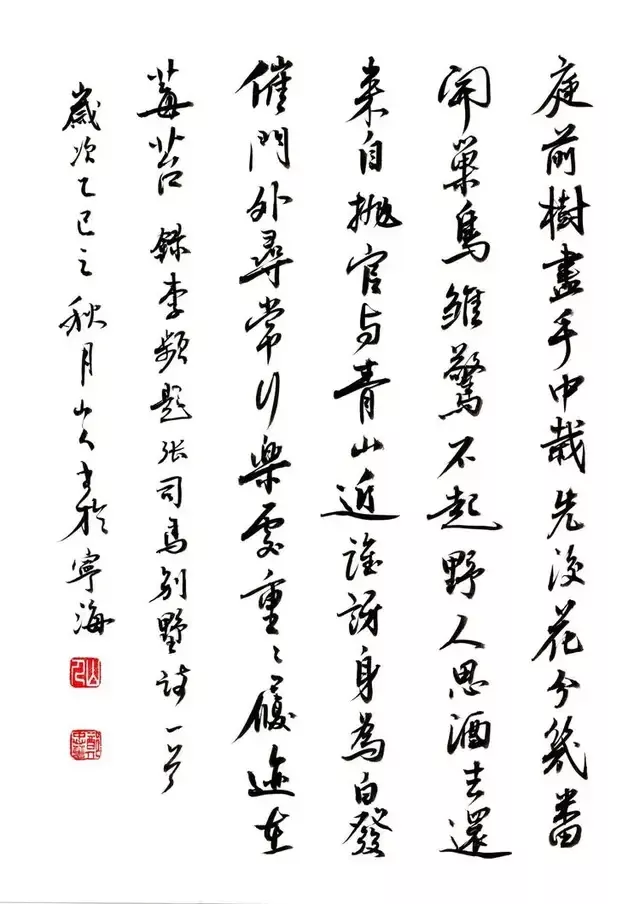 庭前樹盡手中栽先後花分幾番
開巢鳥雛驚不起野人思酒去還
来自抛官与青山近誰訝身為白發
催門外尋常行樂處重〻履迹在
莓苔 錄李頻題张司馬別墅詩一首
歲次乙巳之秋月山人书於寧海
山人